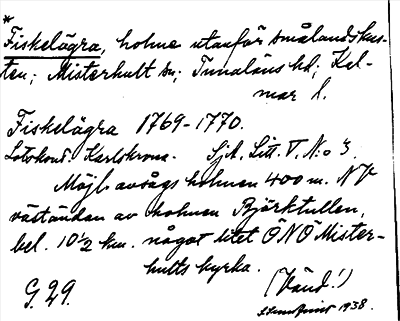 *
Fiskelägra, holme utanför smålandskus-
ten; Misterhult sn; Tunaläns hd; Kal-
mar l.
Fiskelägra 1769-1770.
Lotskont. Karlskrona. Sjk. Litt. T. N:o 3.
Möjl. avsågs holmen 400 m. NV
väständan av holmen Björktullen,
bel. 10 1/2 km. något litet ÖNÖ Mister-
hults kyrka.
(Vänd!)
G. 29.
1938.